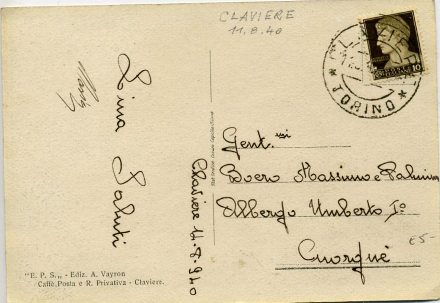 CLAVIERE
11.8.40
CLAVIERE
* TORINO *
10
Lina Saluti
Claviere 11-8-940
Gent.mi
Boero Massimo e Palmira
Albergo Umberto I°
Cuorgnè
£5-
"E. P. S." - Ediz. A. Vayron
Caffè Posta e R. Privativa - Claviere.